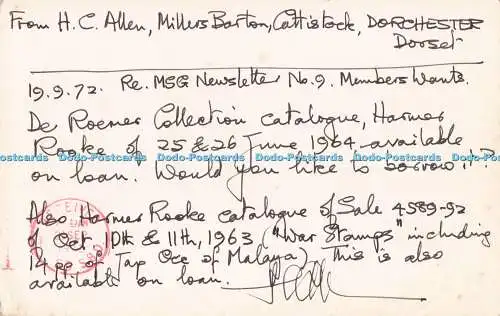 From H. C. Allen, Millers Barton, Cattistock, DORCHESTER
Dorset
19.9.72. Re. MSG Newsletter No. 9. Members Wants.
De Roemer Collection catalogue, Harmer
Rooke of 25 & 26 June 1964 available
on loan. Would you like to borrow it?
Also Harmer Rooke catalogue of Sale 4589-92
of Oct 10th & 11th, 1963 ("War Stamps" including
14pp of Jap Occ of Malaya) This is also
available on loan.
Dodo-Postcards Dodo-Postcards Dodo-Postcards Dodo-Postcards
Dodo-Postcards Dodo-Postcards Dodo-Postcards Dodo-Postcards